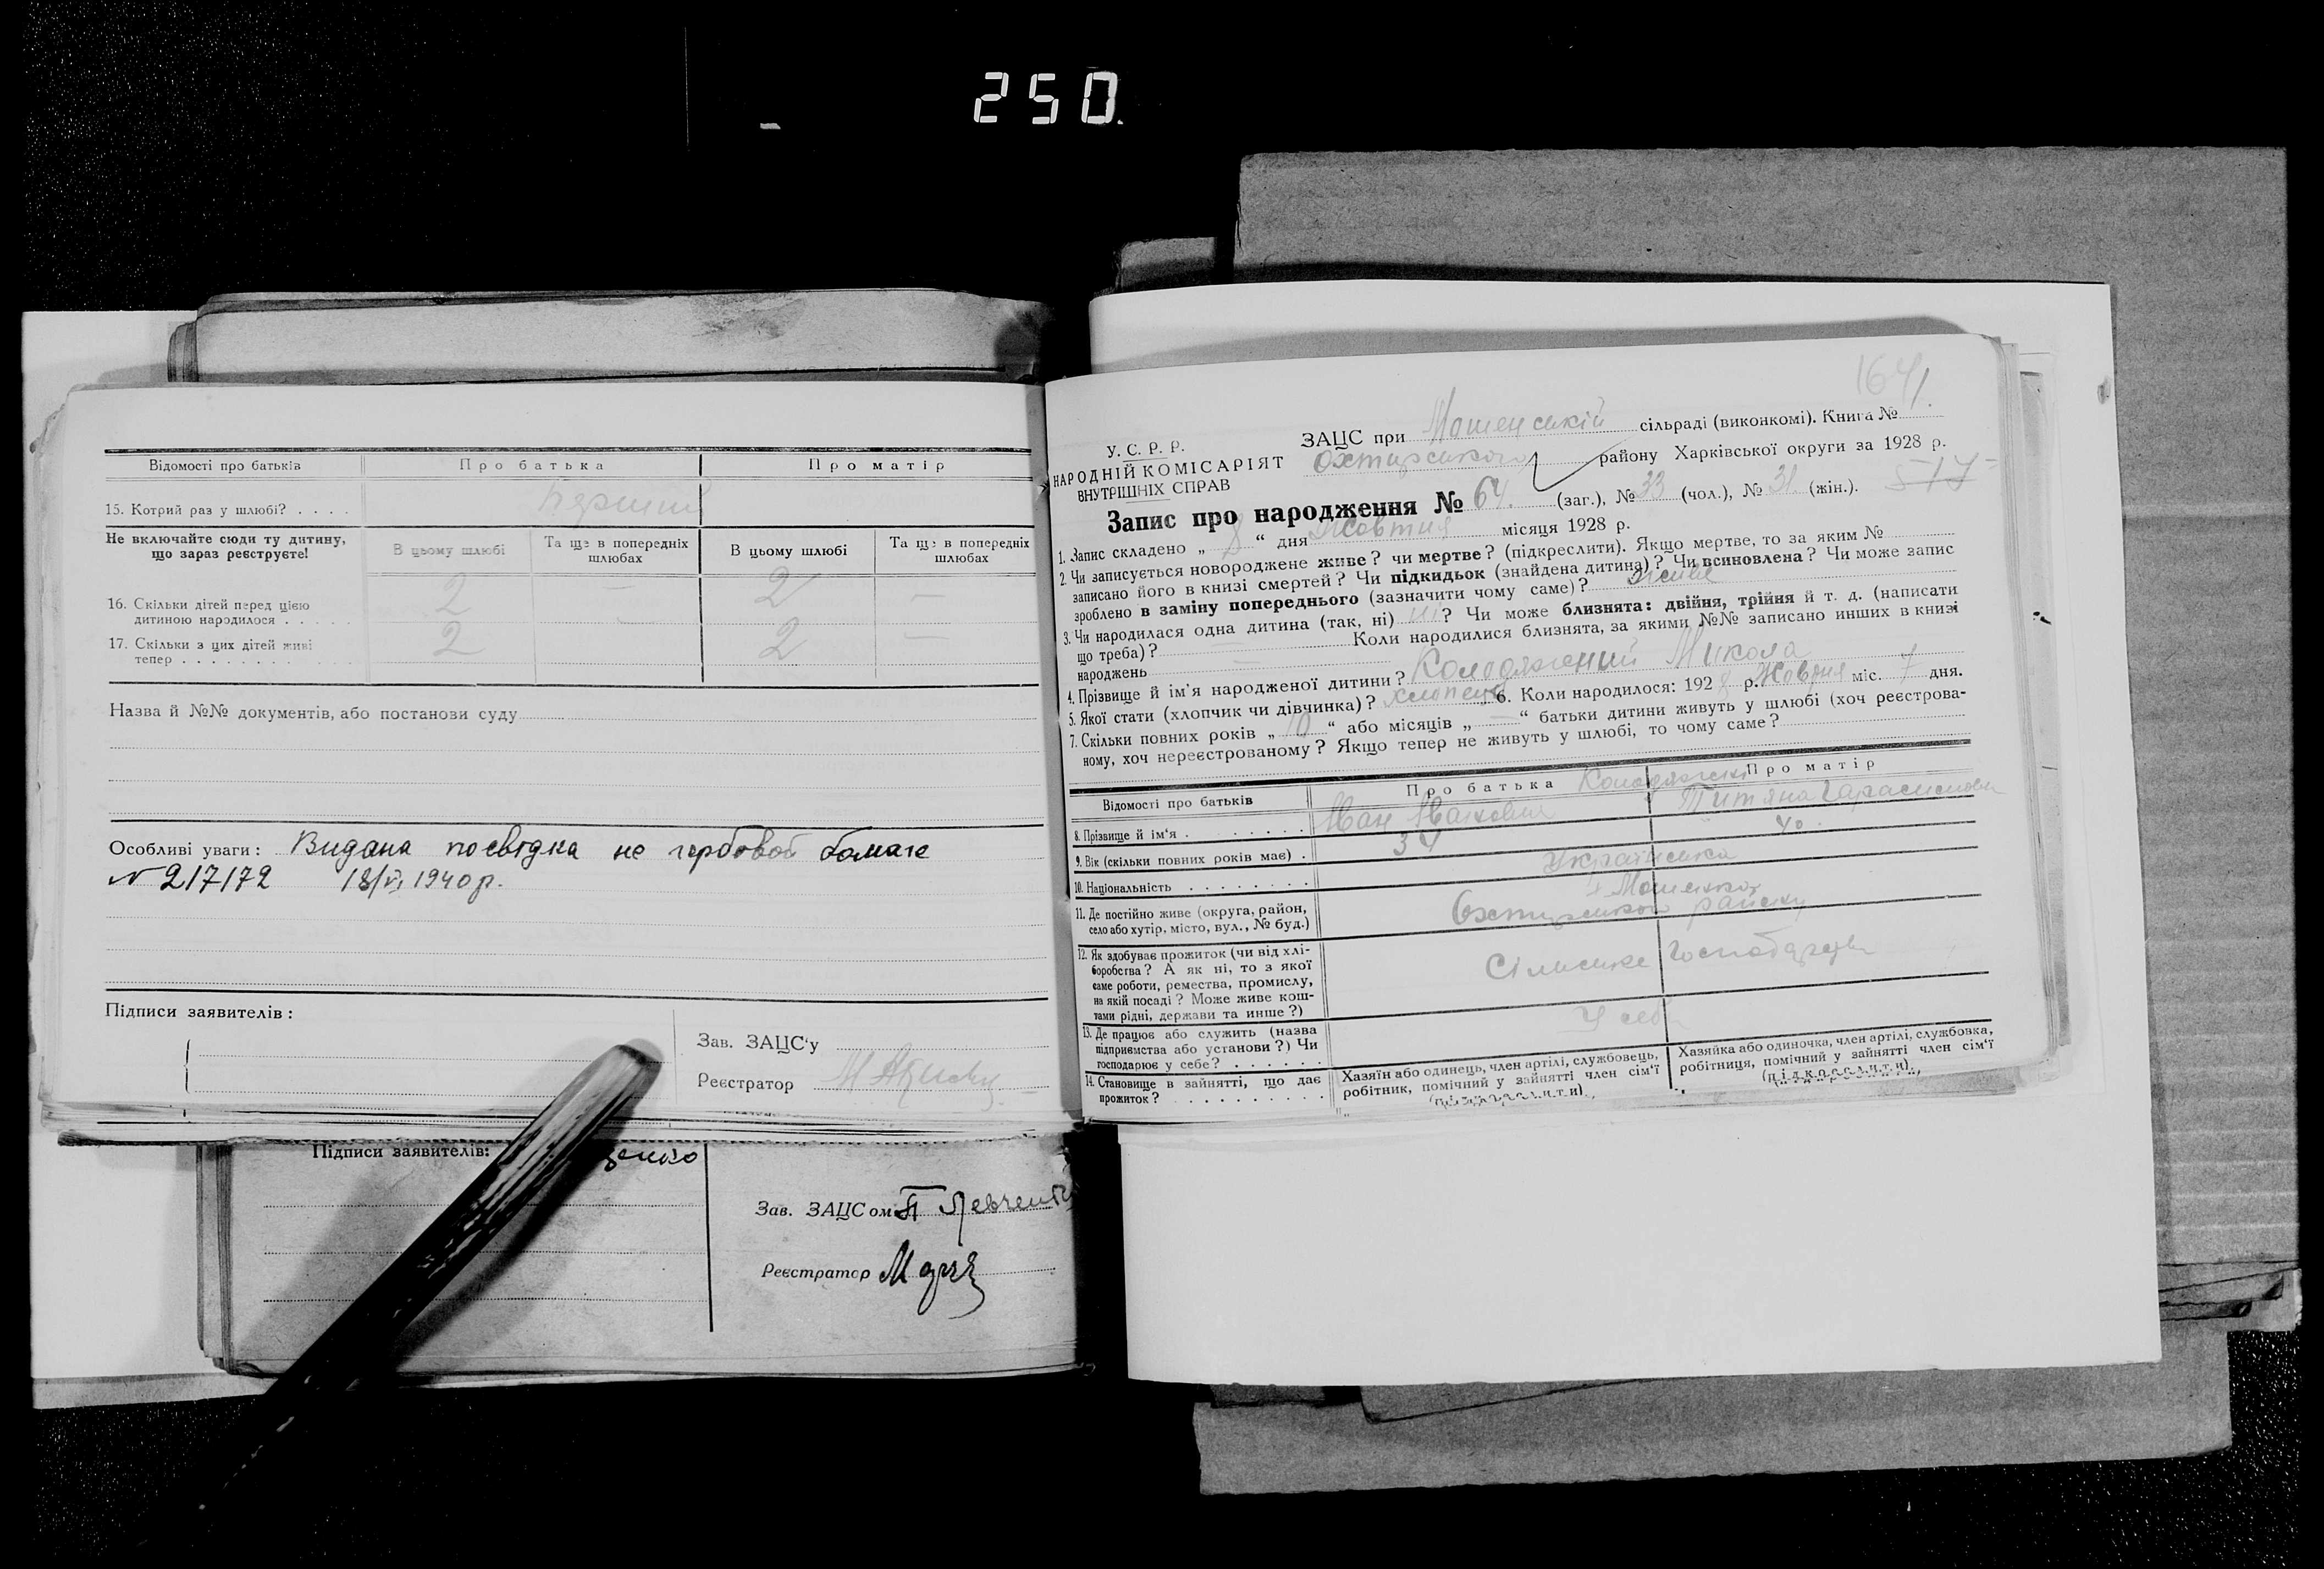 250.
Відомості про батьків Про батька Про матір
15. Котрий раз у шлюбі? . . . . перший
Не включайте сюди ту дитину, що зараз реєструєте!
В цьому шлюбі Та ще в попередніх шлюбах В цьому шлюбі Та ще в попередніх шлюбах
16. Скільки дітей перед цією
дитиною народилося . . . . . 2 — 2 —
17. Скільки з цих дітей живі
тепер . . . . . . . . . 2 2 —
Назва й №№ документів, або постанови суду
Особливі уваги: Видана посвідка не гербовой бомаге
№ 217172 18/VI 1940 р.
Підписи заявителів:
Зав. ЗАЦС'у
Реєстратор
Підписи заявителів:
Зав. ЗАЦСом П Левченко
Реєстратор
164
У. С. Р. Р.
НАРОДНІЙ КОМІСАРІЯТ
ВНУТРІШНІХ СПРАВ
ЗАЦС при Мошенській сільраді (виконкомі). Книга № 1.
Охтирського району Харківської округи за 1928 р.
517
Запис про народження № 64. (заг.), № 33 (чол.), № 31 (жін.).
1. Запис складено „ 8 “ дня Жовтня місяця 1928 р.
2. Чи записується новороджене живе? чи мертве? (підкреслити). Якщо мертве, то за яким №
записано його в книзі смертей? Чи підкидьок (знайдена дитина)? Чи всиновлена? Чи може запис
зроблено в заміну попереднього (зазначити чому саме)? живе
3. Чи народилася одна дитина (так, ні) ? Чи може близнята: двійня, трійня й т. д. (написати
що треба)? — Коли народилися близнята, за якими №№ записано инших в книзі
народжень —
4. Прізвище й ім'я народженої дитини? Колодяжний Микола
5. Якої стати (хлопчик чи дівчинка)? хлопець 6. Коли народилося: 1928 р. Жовтня міс. 7 дня.
7. Скільки повних років „ 10 “ або місяців „ — “ батьки дитини живуть у шлюбі (хоч реєстрова-
ному, хоч нереєстрованому? Якщо тепер не живуть у шлюбі, то чому саме?
Відомості про батьків Про батька Про матір
8. Прізвище й ім'я . . . . . . . . Іван Іванович Титяна
9. Вік (скільки повних років має) . 34 40.
10. Національність . . . . . . . . Українська
11. Де постійно живе (округа, район,
село або хутір, місто, вул., № буд.)
Охтирського району
12. Як здобуває прожиток (чи від хлі-
боробства? А як ні, то з якої
саме роботи, ремества, промислу,
на якій посаді? Може живе кош-
тами рідні, держави та инше?)
Сільське
13. Де працює або служить (назва
підприємства або установи?) Чи
господарює у себе? . . . . . .
У себе
14. Становище в зайнятті, що дає
прожиток? . . . . . . . . . .
Хазяїн або одинець, член артілі, службовець,
робітник, помічний у зайнятті член сім'ї
(підкреслити).
Хазяйка або одиночка, член артілі, службовка,
робітниця, помічний у зайнятті член сім'ї
(підкреслити).